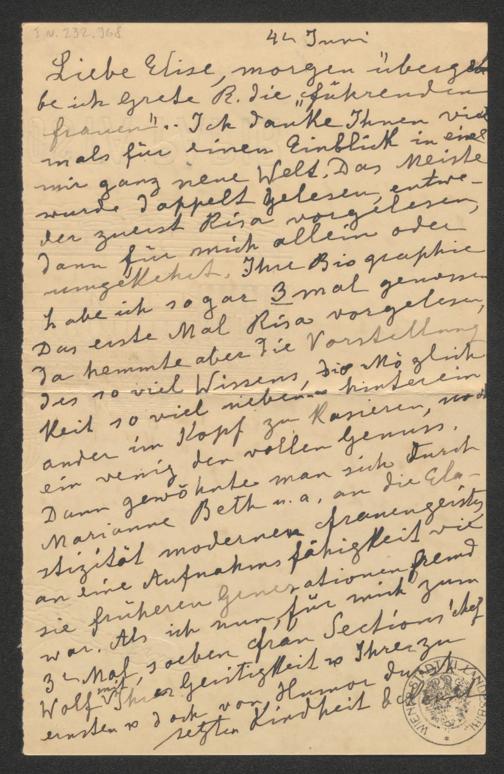 I.N. 232.968
4t Juni
Liebe Elise, morgen überge
be ich Grete R. die "führenden
frauen".. Ich danke Ihnen viel
mals für einen Einblick in eine
mir ganz neue Welt. Das Meiste
wurde doppelt gelesen, entwe-
der zuerst Risa vorgelesen,
dann für mich allein oder
umgekehrt. Ihre Biographie
habe ich sogar 3mal genossen
Das erste Mal Risa vorgelesen,
da hemmte aber die Vorstellung
des so viel Wissens, die Möglich
keit so viel neben hinterein
ander im Kopf zu kasieren, noch
ein wenig den vollen Genuss.
Dann gewöhnte man sich durch
Marianne Beth u. a. an die Ela-
stizität modernen frauengeistes,
an eine Aufnahmsfähigkeit wie
sie früheren Generationen fremd
war. Als ich nun, für mich zum
3t Mal, soeben frau Sections'chef
Wolf mit Ihrer Geistigkeit u Ihrer zu
ernsten u doch von Humor durch
setzten Kindheit &